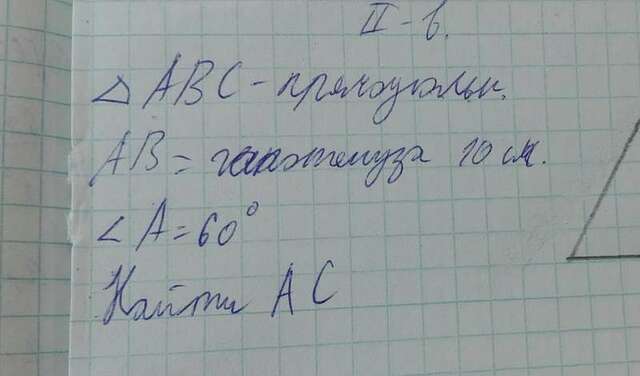 II-в.
△ ABC - прямоугольн.
AB = гипотенуза 10 см.
∠ A = 60°
Найти AC